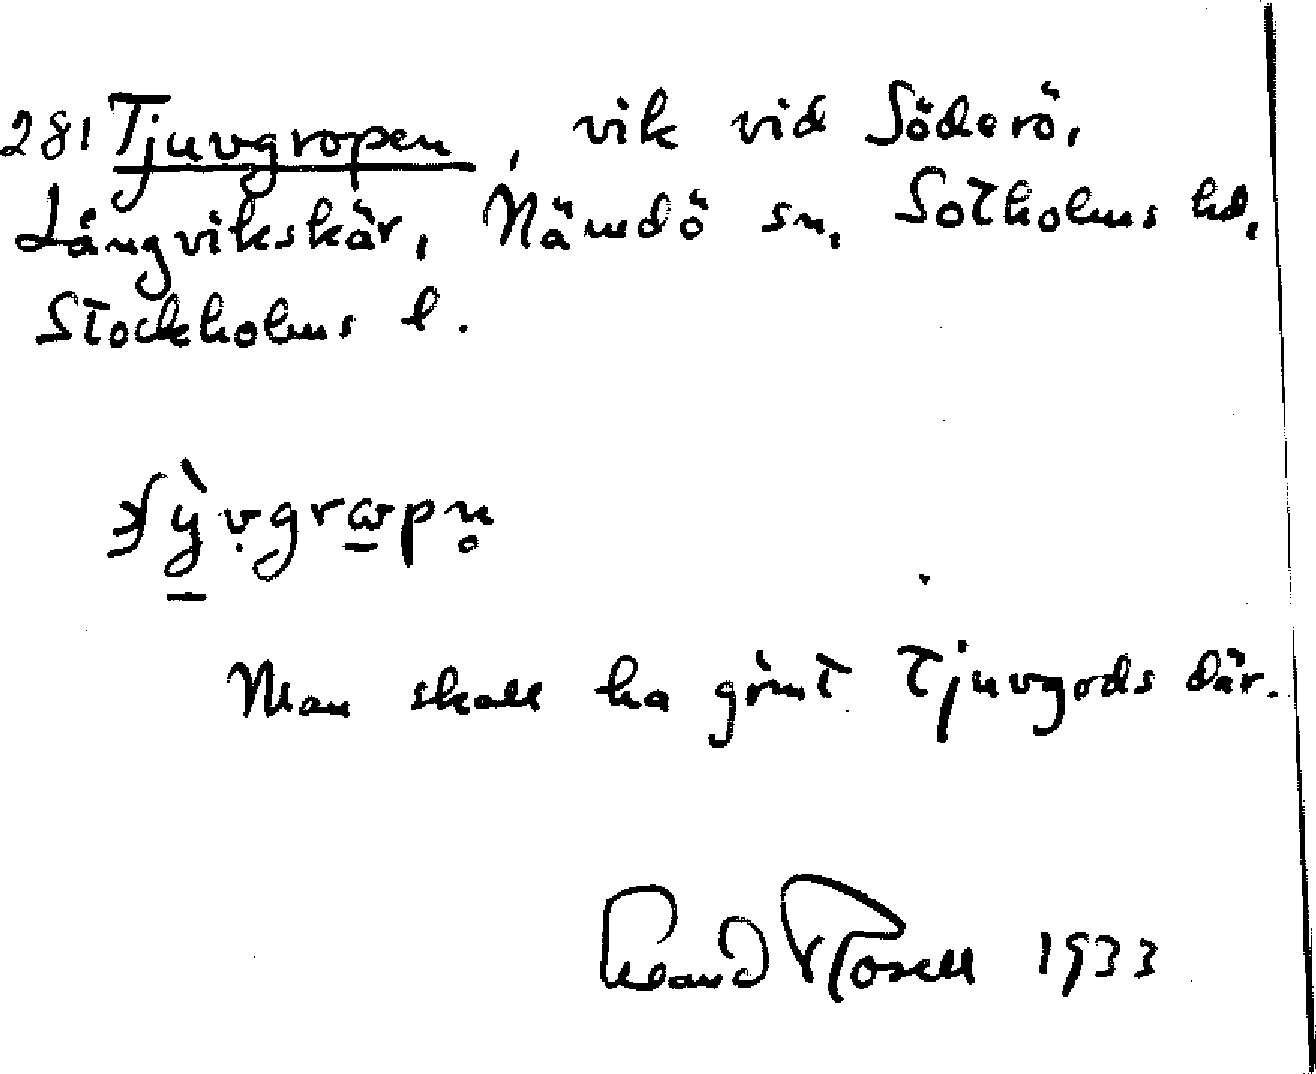 281 Tjuvgropen, vik vid Söderö,
Långvikskär, Nämdö sn, Sotholms hd,
Stockholms l.
Man skall ha gömt tjuvgods där.
1933